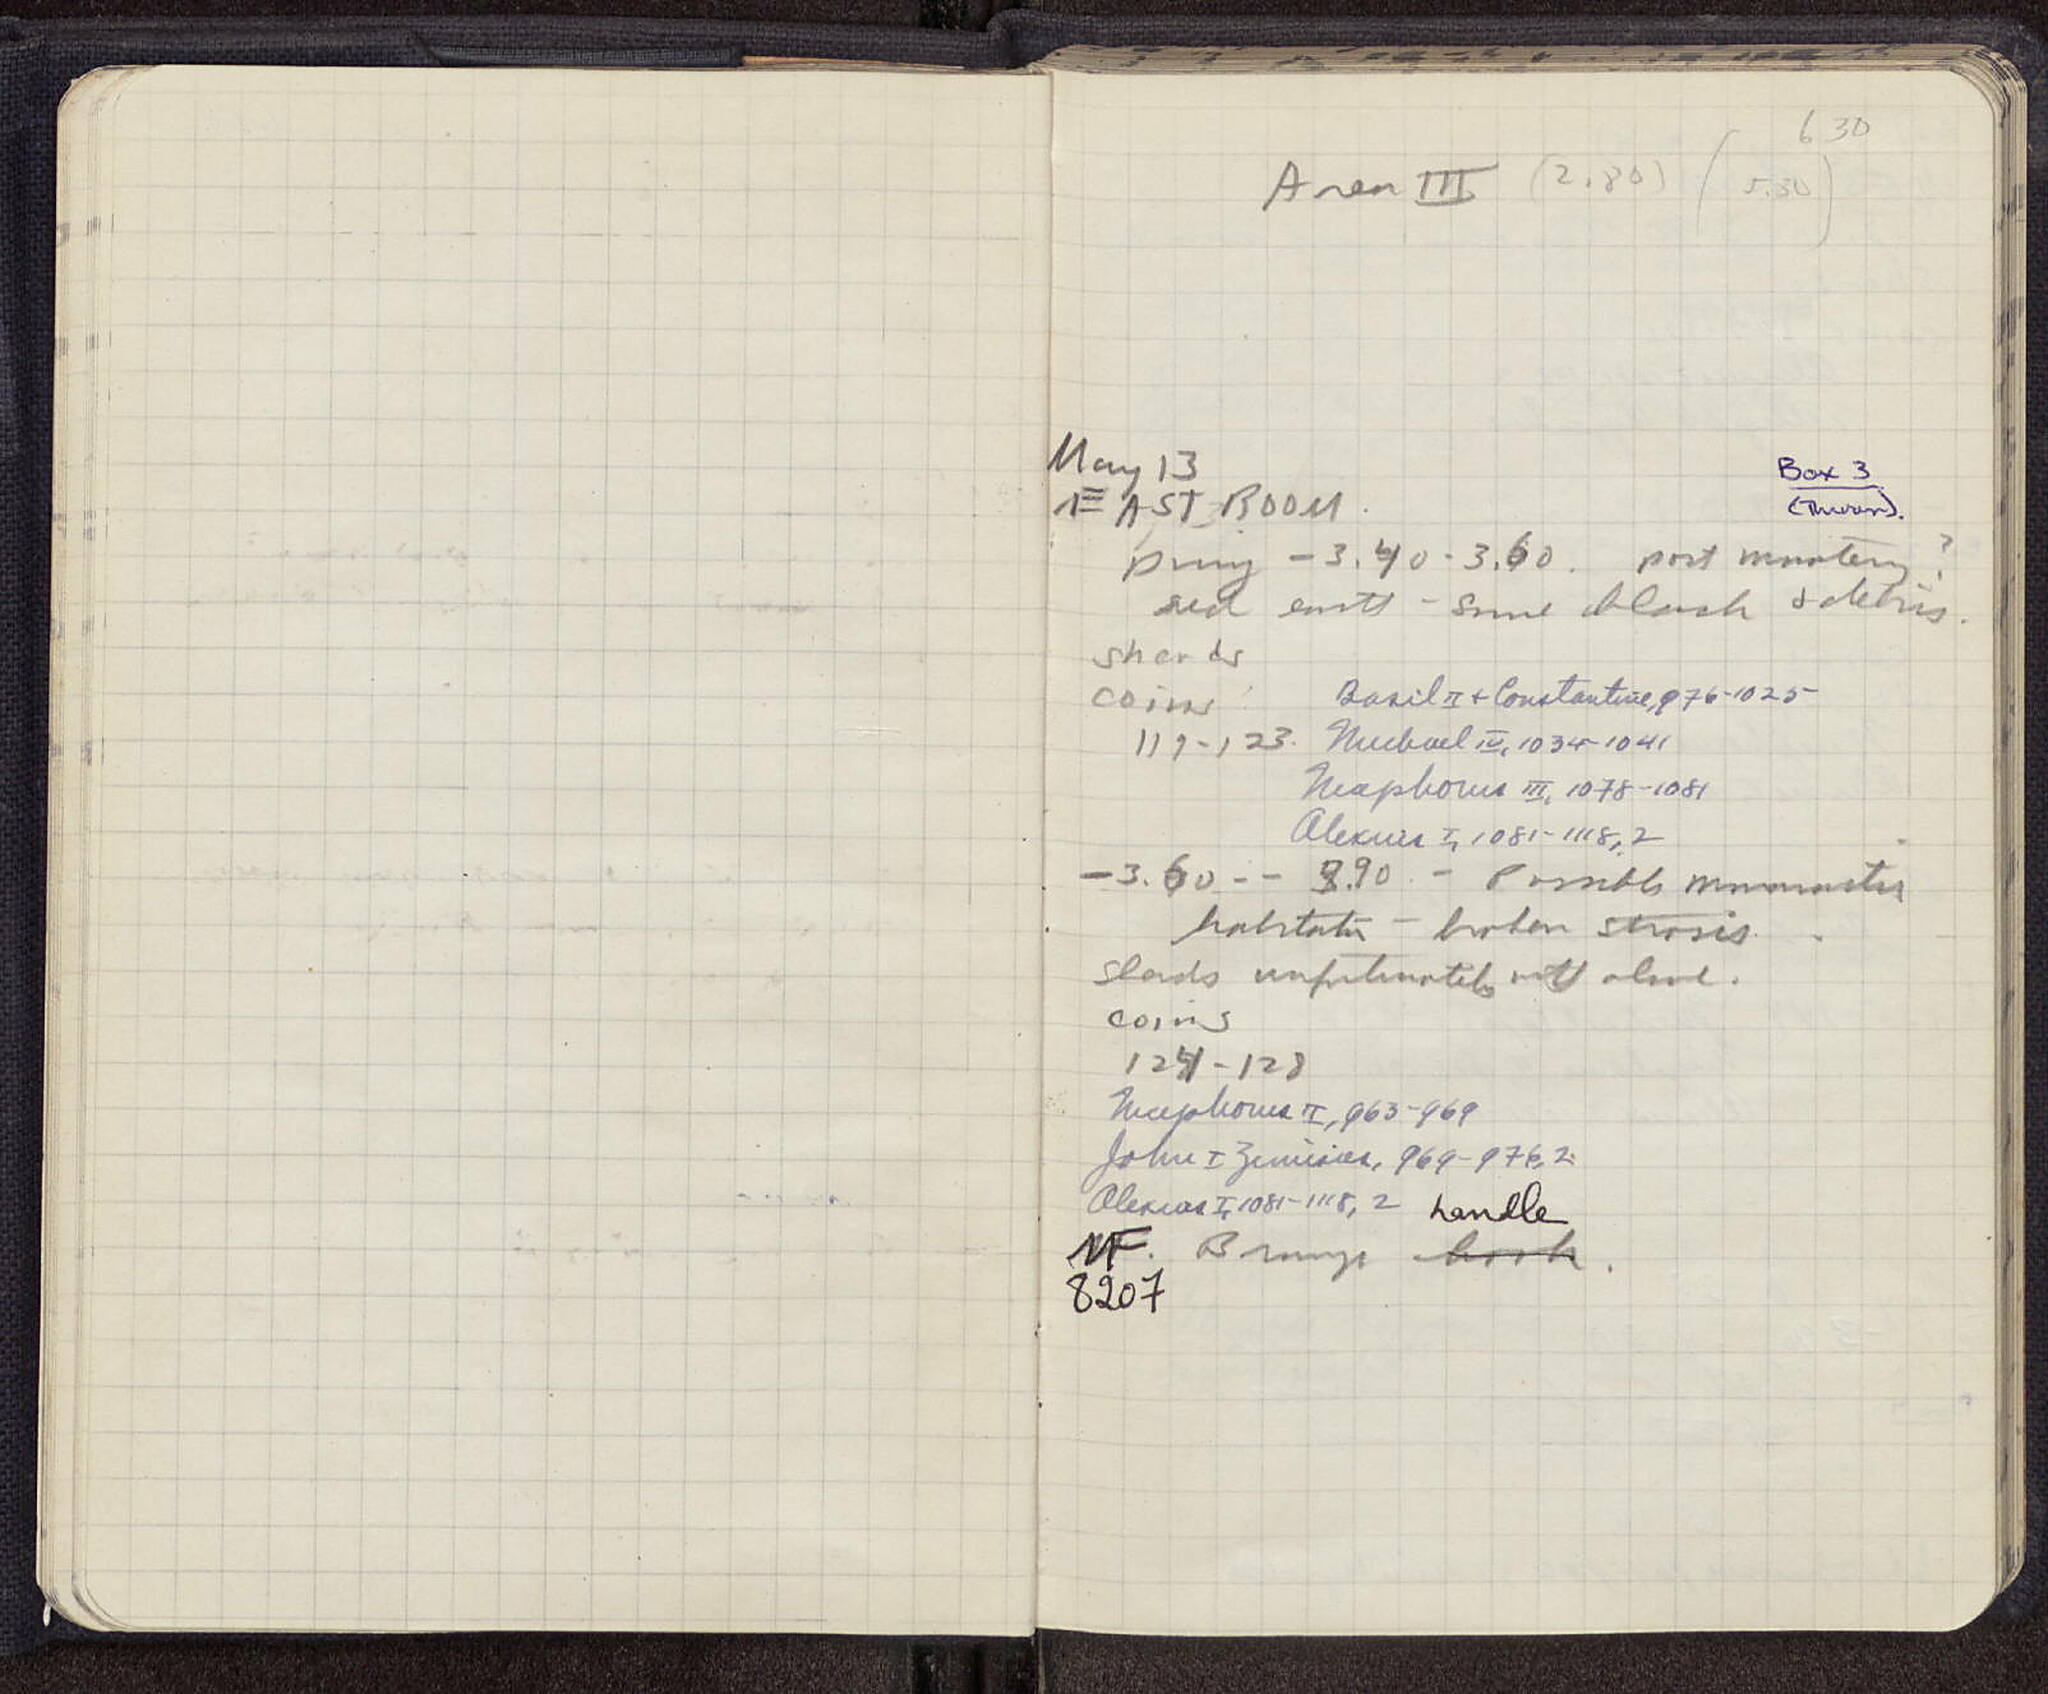 6 30
Area III (2.80) (5.30)
May 13
EAST ROOM.
Box 3
(Thurs).
Drwg -3.40-3.60. post monastery?
red earth - some black & debris.
sherds
coins Basil II + Constantine, 976-1025
119-123. Michael IV, 1034-1041
Nicephorus III, 1078-1081
Alexius I, 1081-1118, 2
-3.60 -- 3.90 - Possible monastic
habitation - broken strosis.
sherds unfortunately with above.
coins
124-128
Nicephorus II, 963-969
John I Zimisces, 969-976, 2
Alexius I, 1081-1118, 2 handle
MF. Bronze hook.
8207